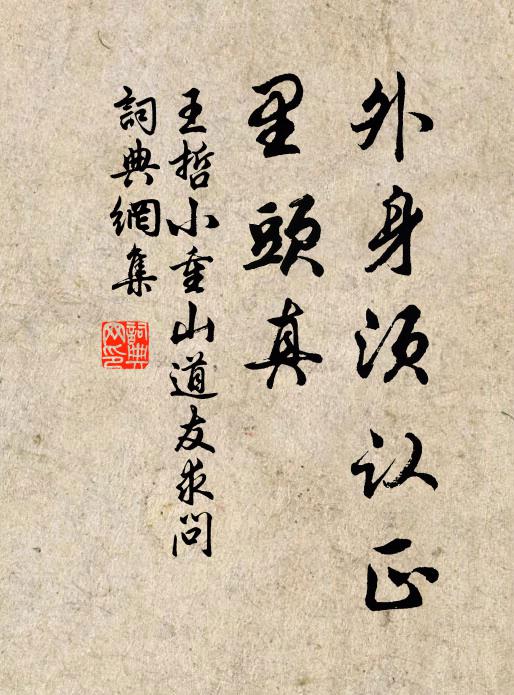 外身须认正
里頭真
王哲小重山道友求問
詞典網集
詞典網印